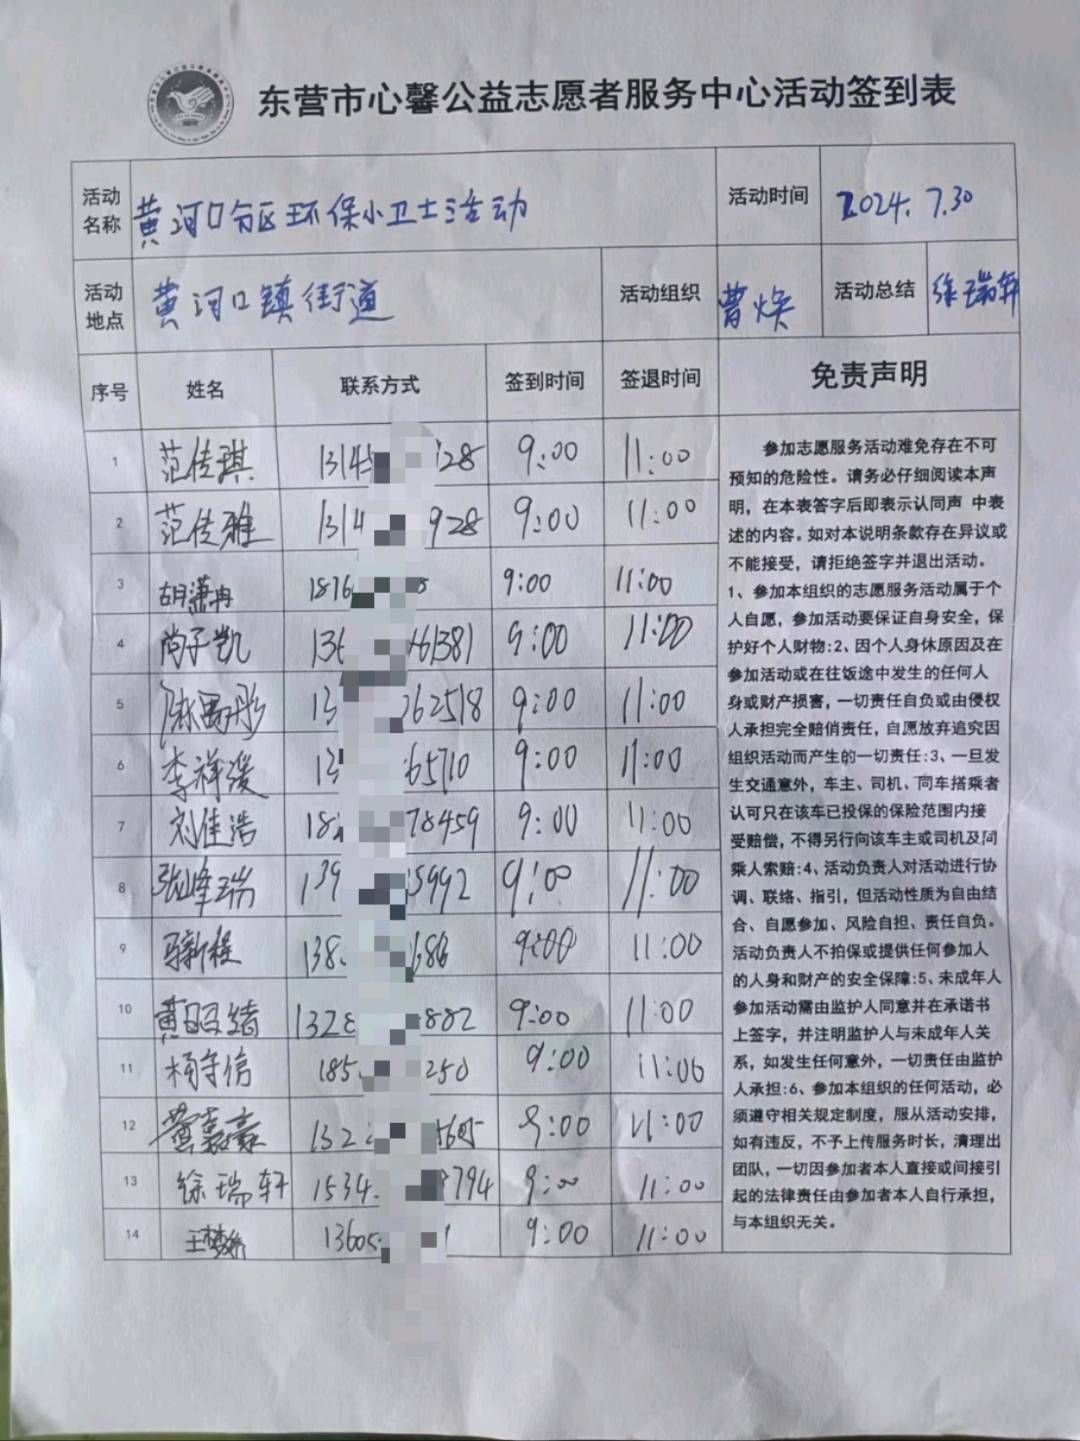 东营市心馨公益志愿者服务中心活动签到表
活动名称 黄河口分区环保小卫士活动 活动时间 2024.7.30
活动地点 黄河口镇街道 活动组织 曹焕 活动总结 徐瑞轩
序号 姓名 联系方式 签到时间 签退时间 免责声明
1 范传琪 1314 28 9:00 11:00
2 范传雅 1314 928 9:00 11:00
3 胡潇冉 1876 8 9:00 11:00
4 尚子凯 136 61381 9:00 11:00
5 13 62518 9:00 11:00
6 李祥浚 13 65710 9:00 11:00
7 刘佳浩 18 78459 9:00 11:00
8 张峰瑞 139 5992 9:00 11:00
9 马新程 138 686 9:00 11:00
10 黄 绪 1328 882 9:00 11:00
11 杨守信 185 250 9:00 11:00
12 嘉豪 132 605 9:00 11:00
13 徐瑞轩 1534 794 9:00 11:00
14 王梦 13605 1 9:00 11:00
参加志愿服务活动难免存在不可
预知的危险性。请务必仔细阅读本声
明，在本表签字后即表示认同声 中表
述的内容。如对本说明条款存在异议或
不能接受，请拒绝签字并退出活动。
1、参加本组织的志愿服务活动属于个
人自愿，参加活动要保证自身安全，保
护好个人财物:2、因个人身休原因及在
参加活动或在往饭途中发生的任何人
身或财产损害，一切责任自负或由侵权
人承担完全赔俏责任，自愿放弃追究因
组织活动而产生的一切责任:3、一旦发
生交通意外，车主、司机、同车搭乘者
认可只在该车已投保的保险范围内接
受赔偿，不得另行向该车主或司机及同
乘人索赔:4、活动负责人对活动进行协
调、联络、指引，但活动性质为自由结
合、自愿参加、风险自担、责任自负。
活动负责人不拍保或提供任何参加人
的人身和财产的安全保障:5、未成年人
参加活动需由监护人同意并在承诺书
上签字，并注明监护人与未成年人关
系，如发生任何意外，一切责任由监护
人承担:6、参加本组织的任何活动，必
须遵守相关规定制度，服从活动安排，
如有违反，不予上传服务时长，清理出
团队，一切因参加者本人直接或间接引
起的法律责任由参加者本人自行承担，
与本组织无关。